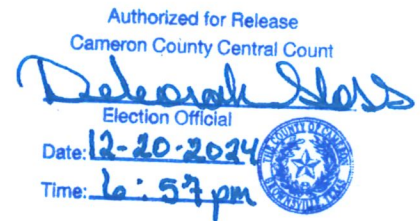 Authorized for Release
Cameron County Central Count
Deborah
Election Official
Date: 12-20-2024
Time: 6:57 pm
THE COUNTY OF CAMERON
BROWNSVILLE, TEXAS